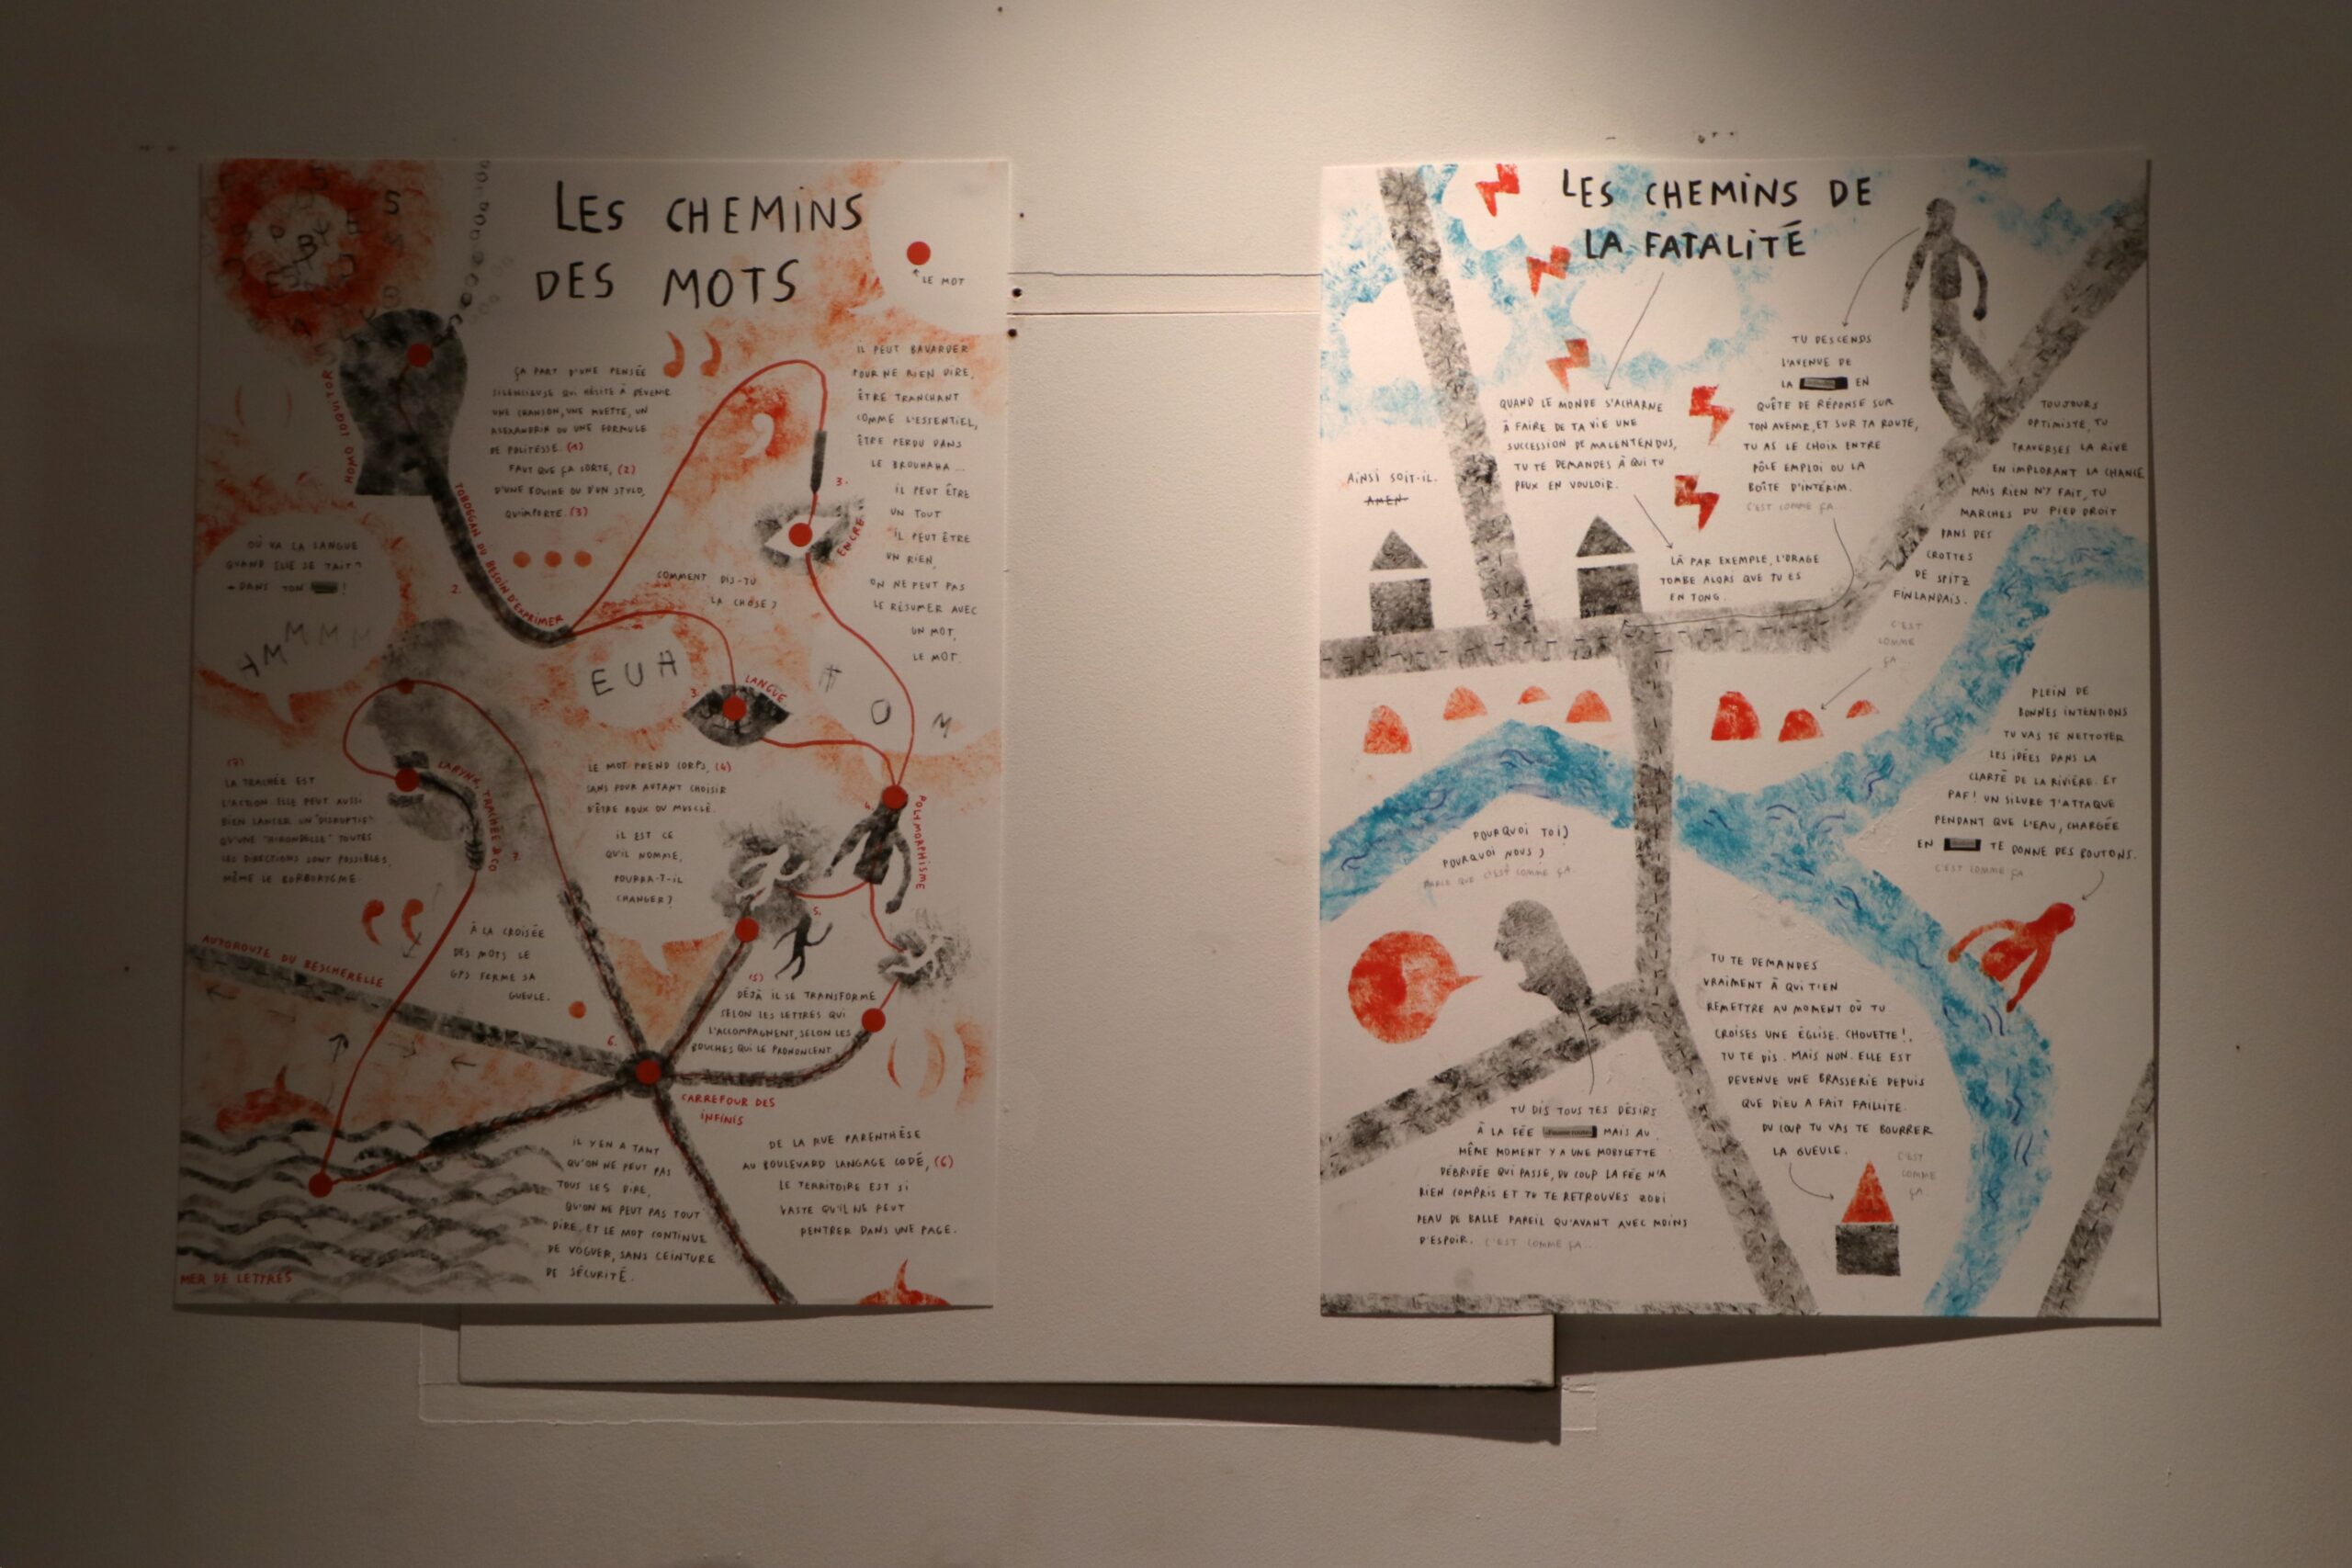 LES CHEMINS
DES MOTS
LE MOT
HOMO LOQUITOR
ÇA PART D'UNE PENSÉE
SILENCIEUSE QUI HÉSITE À DEVENIR
UNE CHANSON, UNE MUETTE, UN
ALEXANDRIN OU UNE FORMULE
DE POLITESSE. (1)
FAUT QUE ÇA SORTE, (2)
D'UNE BOUCHE OU D'UN STYLO,
QU'IMPORTE. (3)
IL PEUT BAVARDER
POUR NE RIEN DIRE,
ÊTRE TRANCHANT
COMME L'ESSENTIEL,
ÊTRE PERDU DANS
LE BROUHAHA...
IL PEUT ÊTRE
UN TOUT
IL PEUT ÊTRE
UN RIEN,
ON NE PEUT PAS
LE RÉSUMER AVEC
UN MOT,
LE MOT.
TOBOGGAN DU BESOIN D'EXPRIMER
2.
3.
ENCRE
OÙ VA LA LANGUE
QUAND ELLE SE TAIT?
DANS TON !
HMMMM
COMMENT DIS-TU
LA CHOSE?
EUH
3.
LANGUE
T O M
(7)
LA TRACHÉE EST
L'ACTION. ELLE PEUT AUSSI
BIEN LANCER UN "DISRUPTIF"
QU'UNE "HIRONDELLE" TOUTES
LES DIRECTIONS SONT POSSIBLES,
MÊME LE BORBORYGME.
LARYNX, TRACHÉE & CO
7.
LE MOT PREND CORPS, (4)
SANS POUR AUTANT CHOISIR
D'ÊTRE ROUX OU MUSCLÉ.
IL EST CE
QU'IL NOMME,
POURRA-T-IL
CHANGER?
4.
POLYMORPHISME
5.
À LA CROISÉE
DES MOTS LE
GPS FERME SA
GUEULE.
AUTOROUTE DU BESCHERELLE
(5)
DÉJÀ IL SE TRANSFORME
SELON LES LETTRES QUI
L'ACCOMPAGNENT, SELON LES
BOUCHES QUI LE PRONONCENT
6.
CARREFOUR DES
INFINIS
IL Y EN A TANT
QU'ON NE PEUT PAS
TOUS LES DIRE,
QU'ON NE PEUT PAS TOUT
DIRE, ET LE MOT CONTINUE
DE VOGUER, SANS CEINTURE
DE SÉCURITÉ.
DE LA RUE PARENTHÈSE
AU BOULEVARD LANGAGE CODÉ, (6)
LE TERRITOIRE EST SI
VASTE QU'IL NE PEUT
RENTRER DANS UNE PAGE.
MER DE LETTRES
LES CHEMINS DE
LA FATALITÉ
TU DESCENDS
L'AVENUE DE
LA EN
QUÊTE DE RÉPONSE SUR
TON AVENIR, ET SUR TA ROUTE,
TU AS LE CHOIX ENTRE
PÔLE EMPLOI OU LA
BOÎTE D'INTÉRIM.
C'EST COMME ÇA
QUAND LE MONDE S'ACHARNE
À FAIRE DE TA VIE UNE
SUCCESSION DE MALENTENDUS,
TU TE DEMANDES À QUI TU
PEUX EN VOULOIR.
AINSI SOIT-IL.
AMEN
LÀ PAR EXEMPLE, L'ORAGE
TOMBE ALORS QUE TU ES
EN TONG.
TOUJOURS
OPTIMISTE, TU
TRAVERSES LA RIVE
EN IMPLORANT LA CHANCE
MAIS RIEN N'Y FAIT, TU
MARCHES DU PIED DROIT
DANS DES
CROTTES
DE SPITZ
FINLANDAIS.
C'EST
COMME
ÇA
PLEIN DE
BONNES INTENTIONS
TU VAS TE NETTOYER
LES IDÉES DANS LA
CLARTÉ DE LA RIVIÈRE. ET
PAF! UN SILURE T'ATTAQUE
PENDANT QUE L'EAU, CHARGÉE
EN TE DONNE DES BOUTONS.
C'EST COMME ÇA
POURQUOI TOI?
POURQUOI NOUS?
PARCE QUE C'EST COMME ÇA
TU TE DEMANDES
VRAIMENT À QUI T'EN
REMETTRE AU MOMENT OÙ TU
CROISES UNE ÉGLISE. CHOUETTE!,
TU TE DIS. MAIS NON. ELLE EST
DEVENUE UNE BRASSERIE DEPUIS
QUE DIEU A FAIT FAILLITE.
DU COUP TU VAS TE BOURRER
LA GUEULE.
C'EST
COMME
ÇA
TU DIS TOUS TES DÉSIRS
À LA FÉE MAIS AU
MÊME MOMENT Y A UNE MOBYLETTE
DÉBRIDÉE QUI PASSE, DU COUP LA FÉE N'A
RIEN COMPRIS ET TU TE RETROUVES ZOBI
PEAU DE BALLE PAREIL QU'AVANT AVEC MOINS
D'ESPOIR. C'EST COMME ÇA...